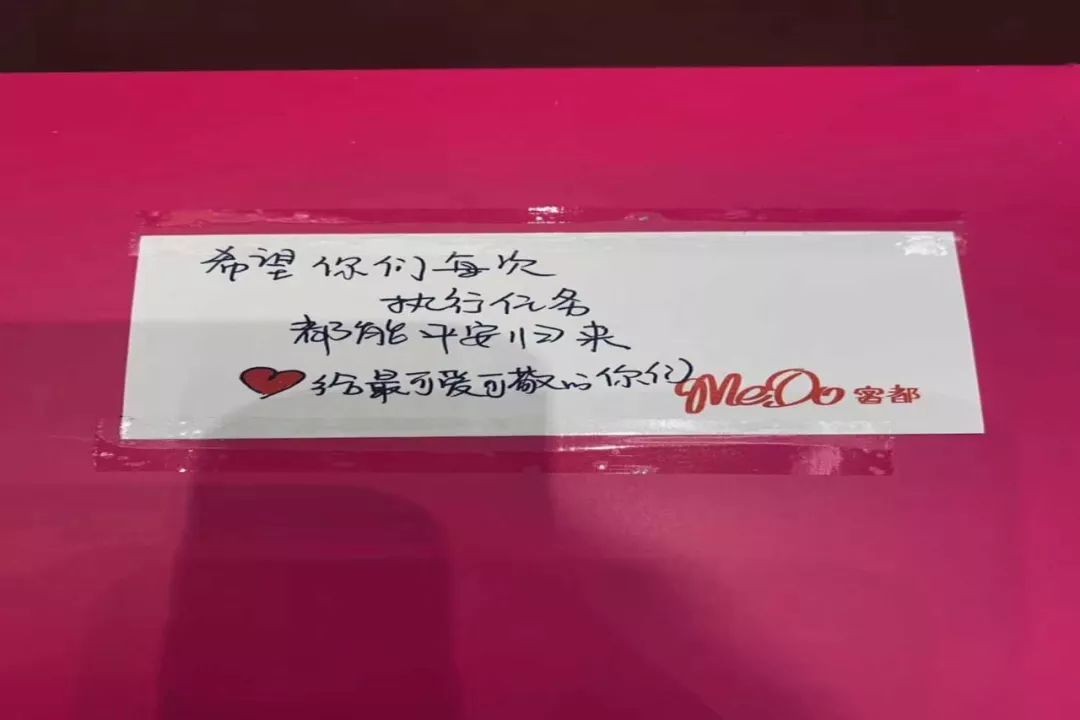 希望你们每次
执行任务
都能平安归来
给最可爱可敬的你们
MeDo 窑都